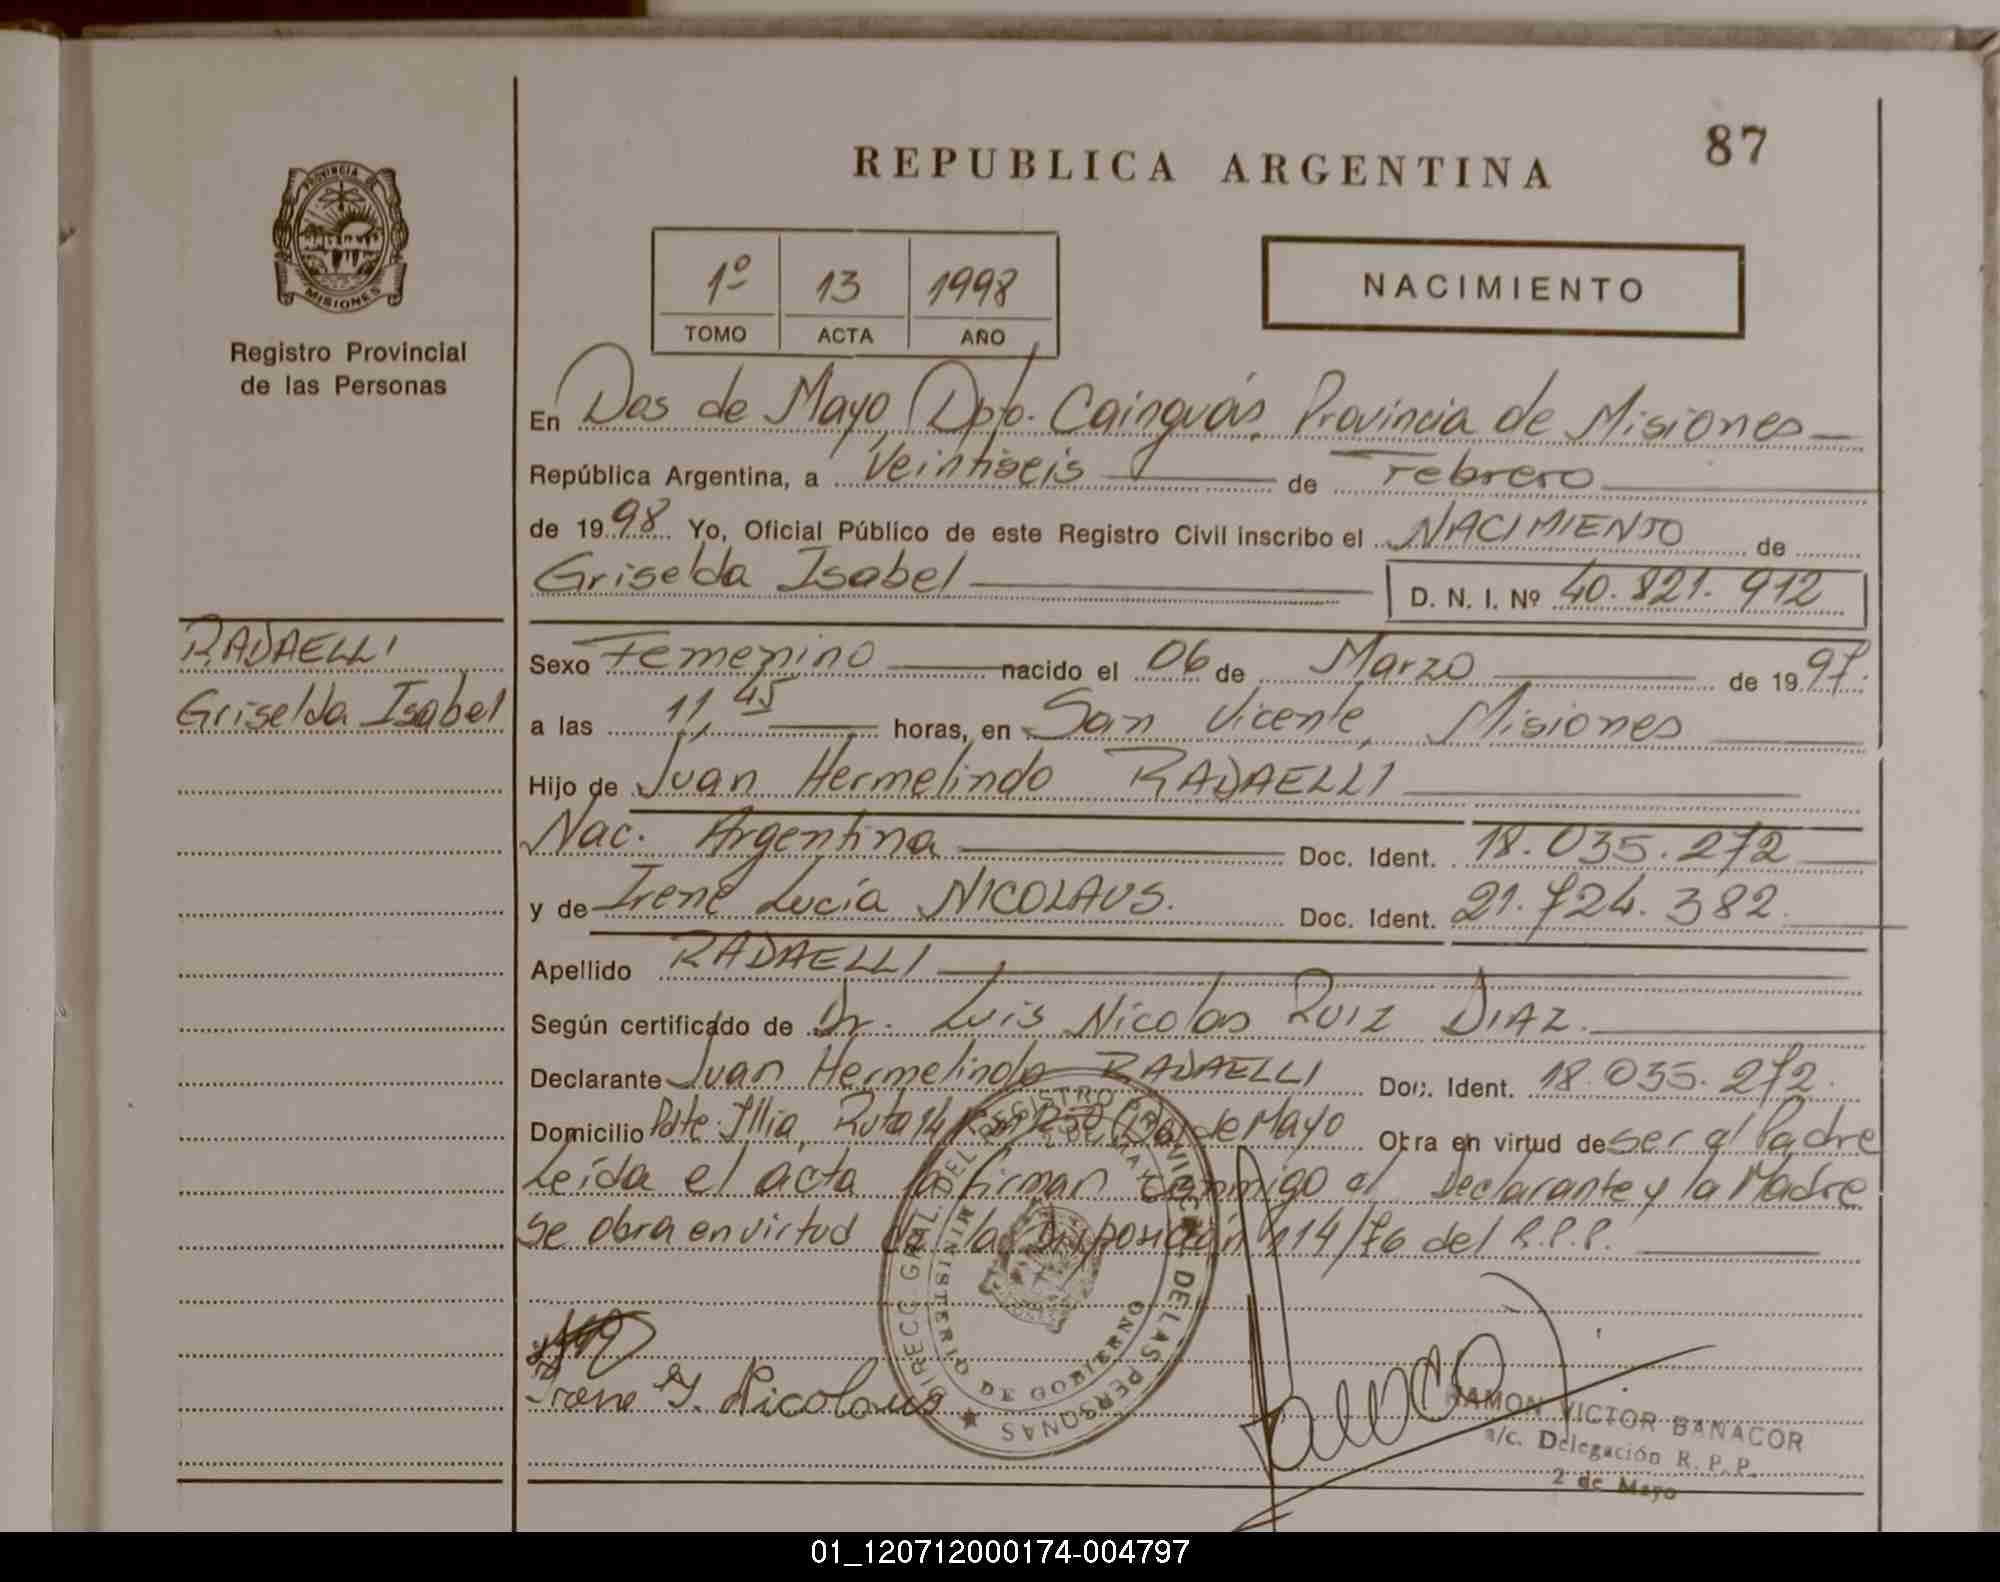 87
REPUBLICA ARGENTINA
PROVINCIA DE
MISIONES
Registro Provincial
de las Personas
1º 13 1998
TOMO ACTA AÑO
NACIMIENTO
En Dos de Mayo, Dpto. Cainguás, Provincia de Misiones
República Argentina, a Veintiseis de Febrero
de 1998 Yo, Oficial Público de este Registro Civil inscribo el NACIMIENTO de
Griselda Isabel D. N. I. Nº 40.821.912
RADAELLI
Griselda Isabel
Sexo Femenino nacido el 06 de Marzo de 1997.
a las 11,45 horas, en San Vicente, Misiones
Hijo de Juan Hermelindo RADAELLI
Nac. Argentina Doc. Ident. 18.035.272
y de Irene Lucía NICOLAUS. Doc. Ident. 21.724.382.
Apellido RADAELLI
Según certificado de Dr. Luis Nicolas RUIZ DIAZ.
Declarante Juan Hermelindo RADAELLI Doc. Ident. 18.035.272.
Domicilio Pdte. Illia, Ruta 14 de Mayo Obra en virtud de ser el Padre
Leída el acta la firman conmigo el Declarante y la Madre
se obra en virtud de la Disposición 114/76 del R.P.P.
DIRECC. GRAL. DEL REGISTRO PROVINCIAL DE LAS PERSONAS
MINISTERIO DE GOBIERNO
Irene L. Nicolaus
RAMON VICTOR BANACOR
a/c. Delegación R. P. P.
2 de Mayo
01_120712000174-004797